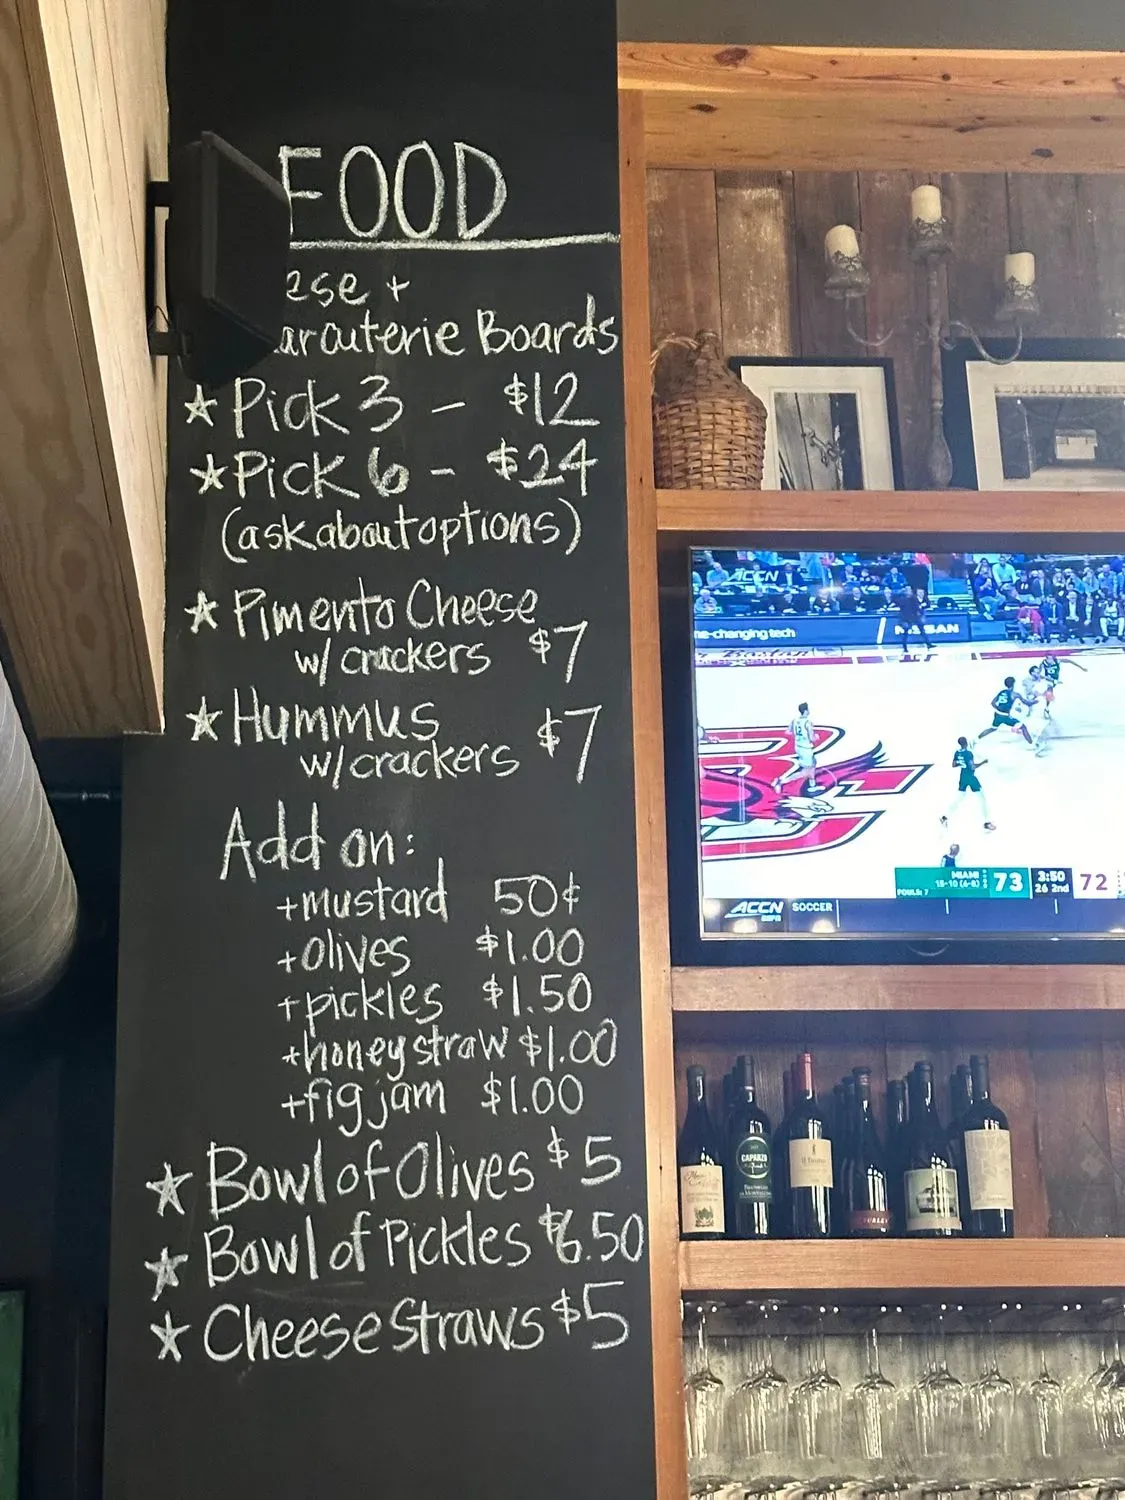 FOOD
ese +
arcuterie Boards
☆ Pick 3 - $12
☆ Pick 6 - $24
(ask about options)
☆ Pimento Cheese
w/ crackers $7
☆ Hummus
w/ crackers $7
Add on:
+mustard 50¢
+olives $1.00
+pickles $1.50
+honey straw $1.00
+fig jam $1.00
☆ Bowl of Olives $5
☆ Bowl of Pickles $6.50
☆ Cheese Straws $5
ACCN
me-changing tech
NISSAN
MIAMI
15-10 (6-8)
FOULS: 7
73
3:50
26 2nd
72
ACCN
ESPN
SOCCER
CAPARZO